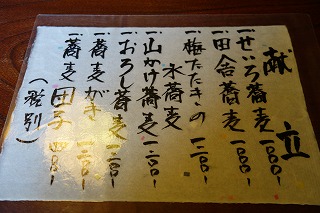 献立
一、せいろ蕎麦 一〇〇〇-
一、田舎蕎麦 一〇〇〇-
一、梅たたきの
水蕎麦 一二〇〇-
一、山かけ蕎麦 一二〇〇-
一、おろし蕎麦 一二〇〇-
一、蕎麦がき 一二〇〇-
一、蕎麦団子 四〇〇-
(税別)